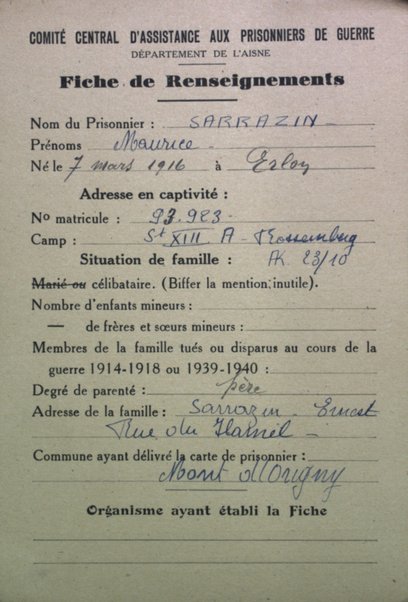 COMITÉ CENTRAL D'ASSISTANCE AUX PRISONNIERS DE GUERRE
DÉPARTEMENT DE L'AISNE
Fiche de Renseignements
Nom du Prisonnier : SARRAZIN
Prénoms Maurice
Né le 7 mars 1916 à Erloy
Adresse en captivité :
No matricule : 93.923
Camp : St XIII A
Situation de famille : AK 23/10
Marié ou célibataire. (Biffer la mention inutile).
Nombre d'enfants mineurs :
— de frères et sœurs mineurs :
Membres de la famille tués ou disparus au cours de la
guerre 1914-1918 ou 1939-1940 :
Degré de parenté : père
Adresse de la famille : Sarrazin Ernest
Rue du Hamel
Commune ayant délivré la carte de prisonnier :
Mont d'Origny
Organisme ayant établi la Fiche